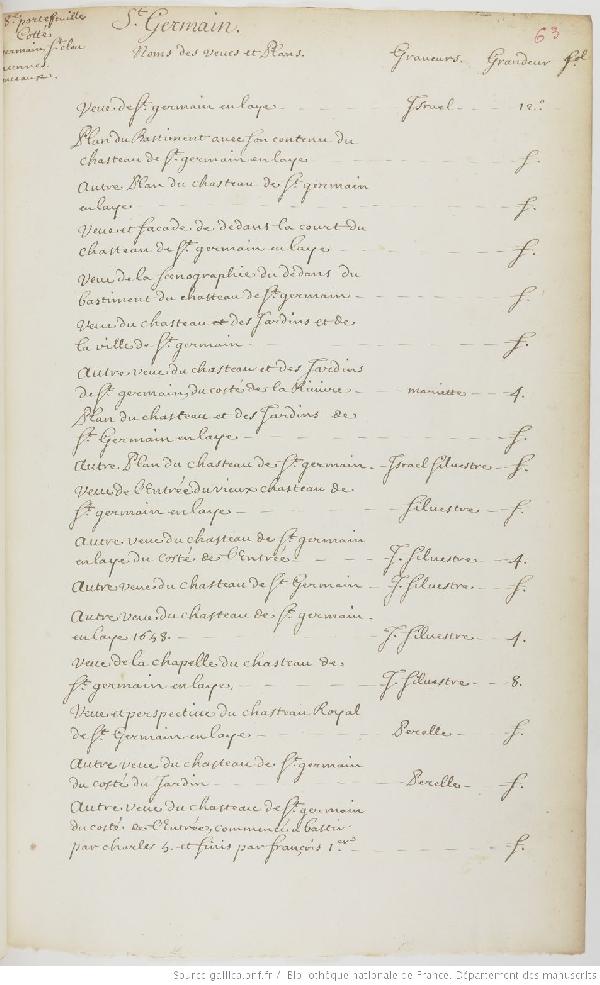 8.e portefeuille
Cotté
germain, St. clou
St. Germain.
63
Noms des veues et Plans. Graveurs. Grandeur fol
Veue de St. germain en laye Israel 12.o
Plan du Bastiment avec son contenu du
chasteau de St. germain en laye f.
Autre Plan du chasteau de St. germain
en laye f.
Veue et facade de dedans la court du
chasteau de St. germain en laye f.
Veue de la scenographie du dedans du
bastiment du chasteau de St. germain f.
Veue du chasteau et des Jardins et de
la ville de St. germain f.
Autre veue du chasteau et des Jardins
de St. germain, du costé de la Riviere mariette 4.
Plan du chasteau et des Jardins de
St. Germain en laye f.
Autre Plan du chasteau de St. germain. Israel silvestre f.
Veue de l'Entrée du vieux chasteau de
St. germain en laye silvestre f.
Autre veue du chasteau de St. germain
en laye du costé de l'Entrée. J. silvestre 4.
Autre veue du chasteau de St. Germain J. silvestre f.
Autre veue du chasteau de St. germain
en laye 1658. J. silvestre 4.
Veue de la chapelle du chasteau de
St. germain en laye. J. silvestre 8.
Veue et perspective du chasteau Royal
de St. Germain en laye Perelle f.
Autre veue du chasteau de St. germain
du costé du Jardin Perelle f.
Autre veue du chasteau de St. germain
du costé de l'Entrée, commencé a bastir
par charles 5. et finis par françois 1.er f.
Source gallica.bnf.fr / Bibliothèque nationale de France. Département des manuscrits